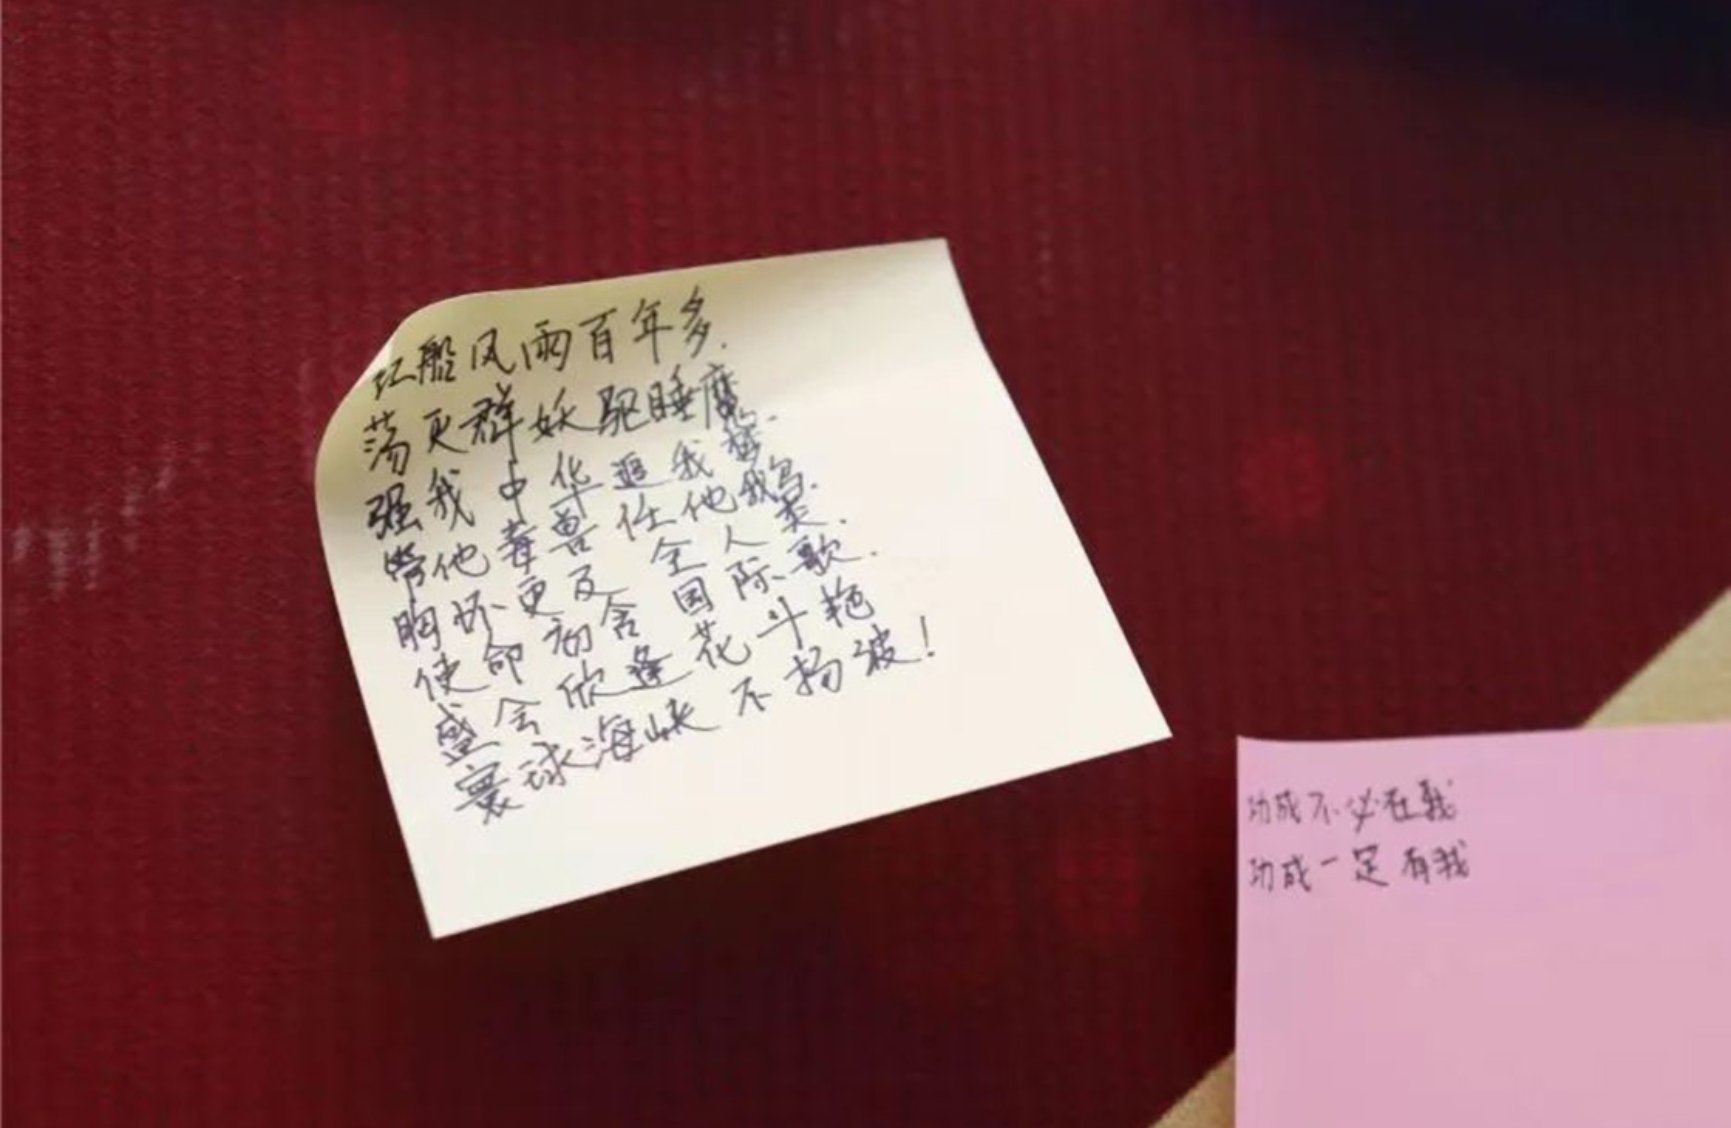 红船风雨百年多.
荡灭群妖驱睡魔
强我中华追我梦.
凭他毒兽任他鹅.
胸怀更及全人类.
使命初含国际歌.
盛会欣逢花斗艳
寰球海峡不扬波！
功成不必在我
功成一定有我